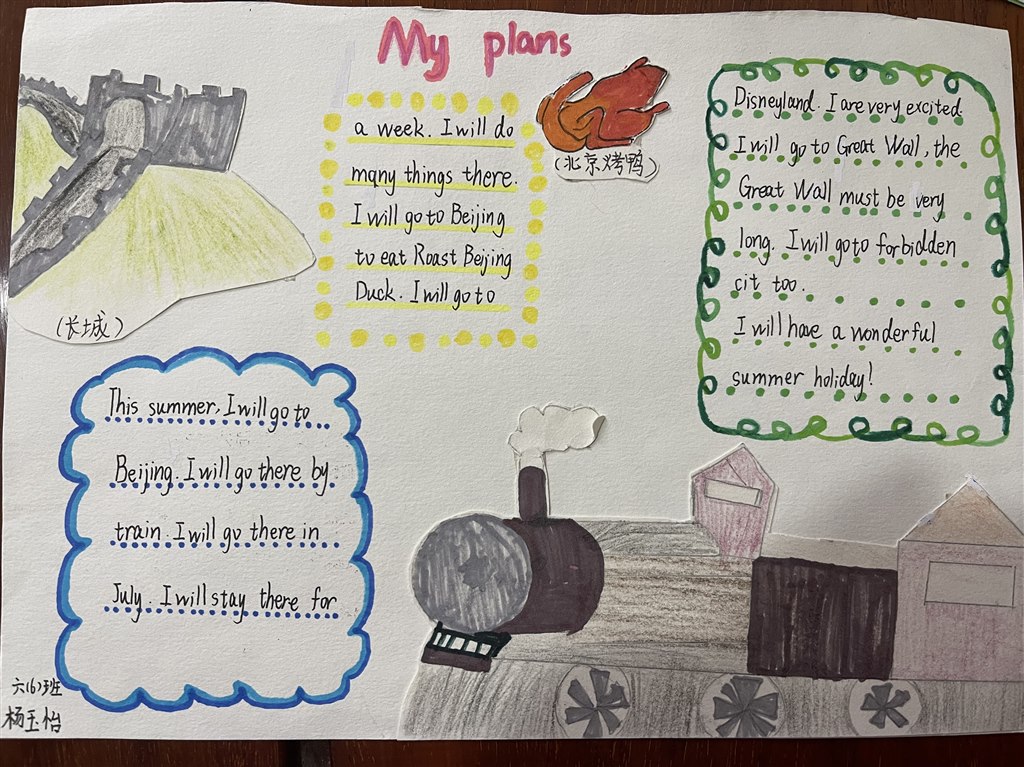 My plans
(长城)
This summer, I will go to
Beijing. I will go there by
train. I will go there in
July. I will stay there for
a week. I will do
many things there.
I will go to Beijing
to eat Roast Beijing
Duck. I will go to
(北京烤鸭)
Disneyland. I are very excited.
I will go to Great Wall, the
Great Wall must be very
long. I will go to forbidden
cit too.
I will have a wonderful
summer holiday!
六(6)班
杨玉怡